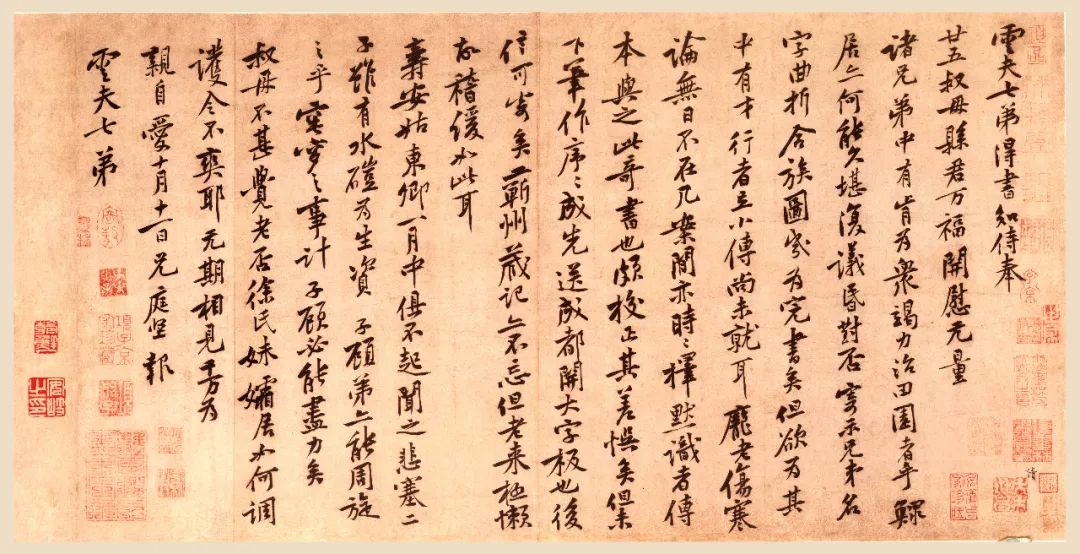 雲夫七弟得書知侍奉
廿五叔母縣君万福開慰无量
諸兄弟中有肯為衆竭力治田園者乎鰥
居亦何能久堪復議昏對否寄示兄弟名
字曲折合族圖成為完書矣但欲為其
中有才行者立小傳尚未就耳龐老傷寒
論無日不在几案間亦時〻擇默識者傳
本與之此奇書也頗校正其差悮矣但未
下筆作序〻成先送成都開大字板也後
信可寄矣蘄州藏記亦不忘但老来極懶
故稽緩如此耳
壽安姑東卿一月中俱不起聞之悲塞二
子雖有水磑為生資子顧弟亦能周旋
之乎窀穸之事計子顧必能盡力矣
叔母不甚覺老否徐氏妹孀居如何調
護令不爽耶无期相見千万為
親自愛十月十一日兄庭堅報
雲夫七弟